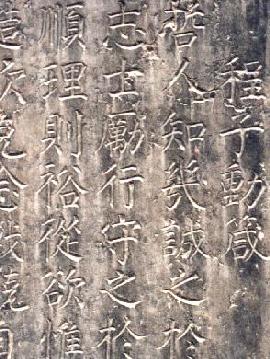 程子動箴
哲人知幾誠之於
志士勵行守之於
順理則裕從欲惟
造次克念戰兢自